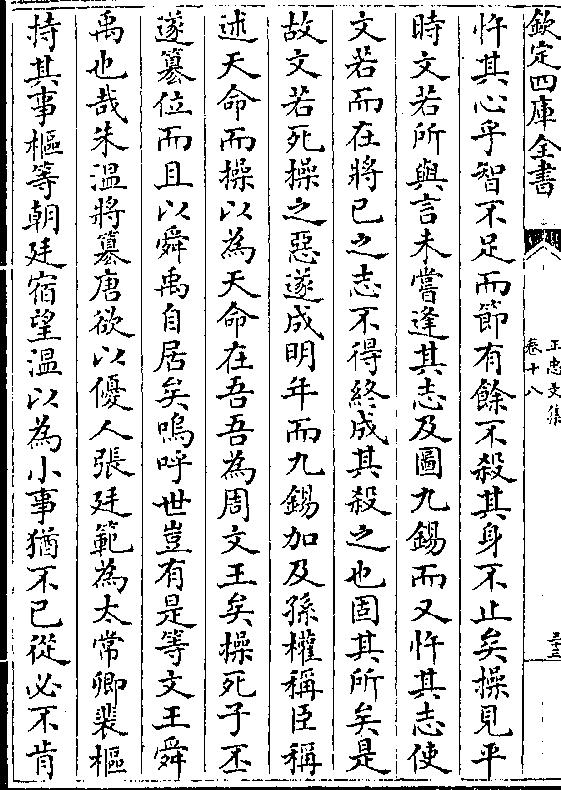 欽定四庫全書
王忠文集
卷十八
三十三
忤其心乎智不足而節有餘不殺其身不止矣操見平
時文若所與言未嘗逢其志及圖九錫而又忤其志使
文若而在將已之志不得終成其殺之也固其所矣是
故文若死操之惡遂成明年而九錫加及孫權稱臣稱
述天命而操以為天命在吾吾為周文王矣操死子丕
遂簒位而且以舜禹自居矣嗚呼世豈有是等文王舜
禹也哉朱溫將簒唐欲以優人張廷範為太常卿裴樞
持其事樞等朝廷宿望溫以為小事猶不已從必不肯